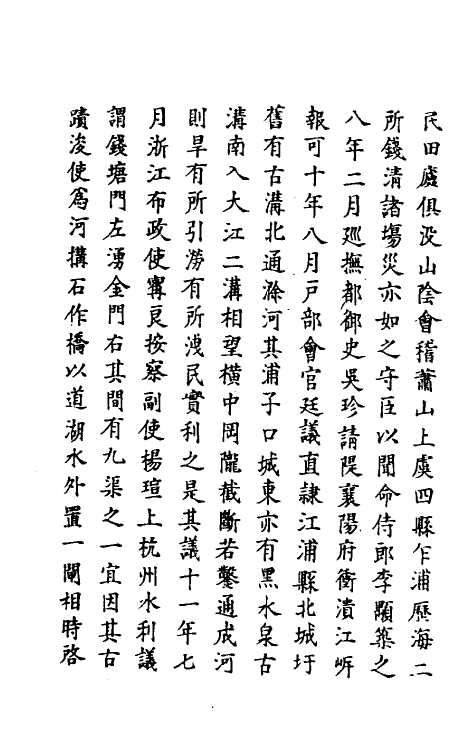 民田廬俱沒山陰會稽蕭山上虞四縣乍浦瀝海二
所錢清諸塲災亦如之守臣以聞命侍郎李顒築之
八年二月廵撫都御史吳珍請隄襄陽府衝潰江㟁
報可十年八月戶部會官廷議直隷江浦縣北城圩
舊有古溝北通滁河其浦子口城東亦有黑水泉古
溝南入大江二溝相望橫中岡隴截斷若鑿通成河
則旱有所引澇有所洩民實利之是其議十一年七
月浙江布政使寗良按察副使楊瑄上杭州水利議
謂錢塘門左湧金門右其間有九渠之一宜因其古
蹟浚使爲河搆石作橋以道湖水外置一閘相時啓